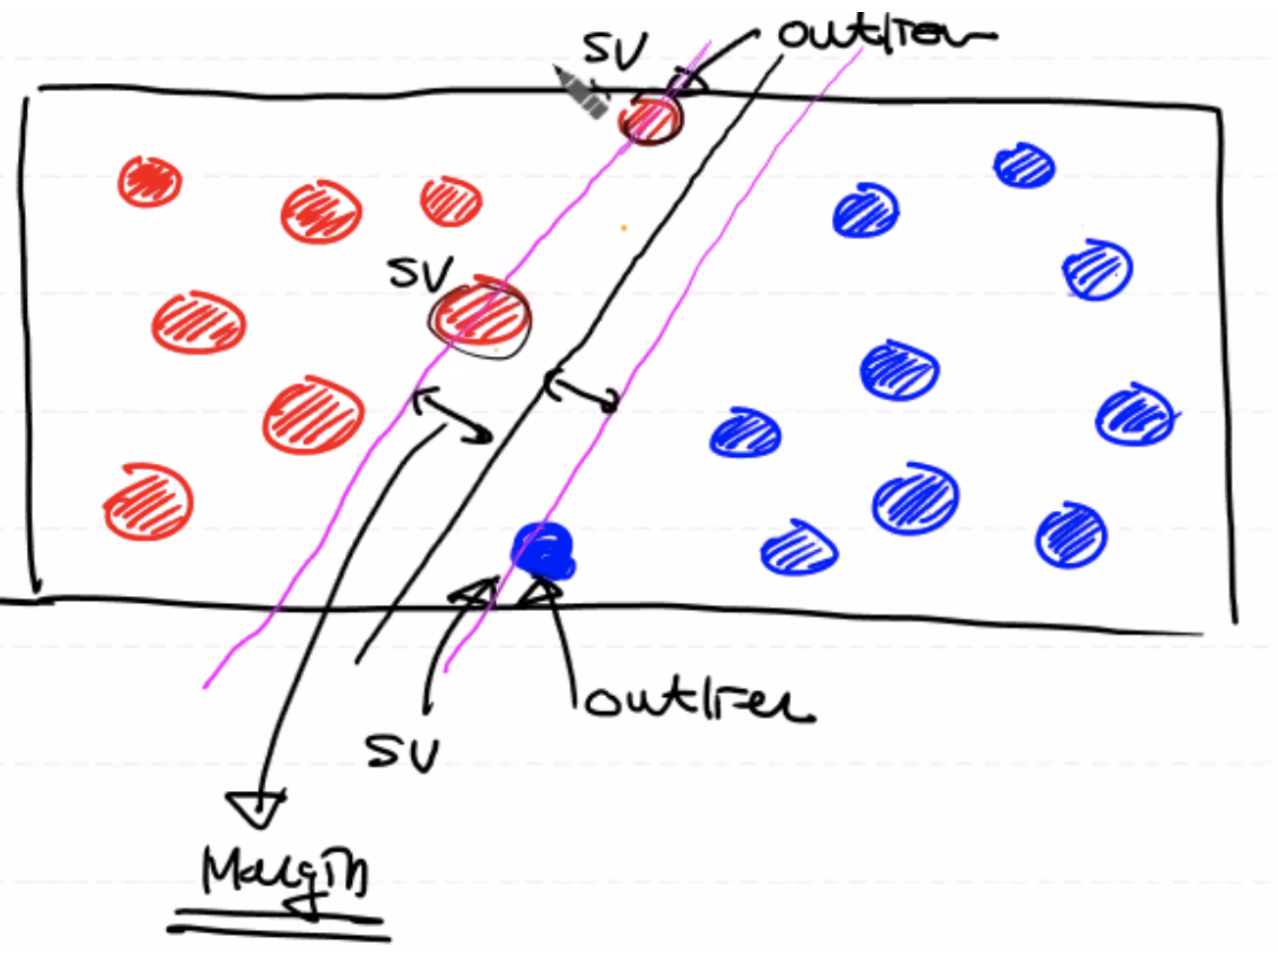 SV
outlier
SV
outlier
SV
Margin